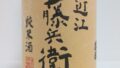 近江
藤兵衛
純米酒